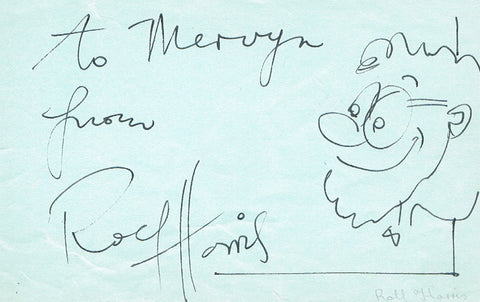 To Mervyn
from
Rolf Harris
Rolf Harris